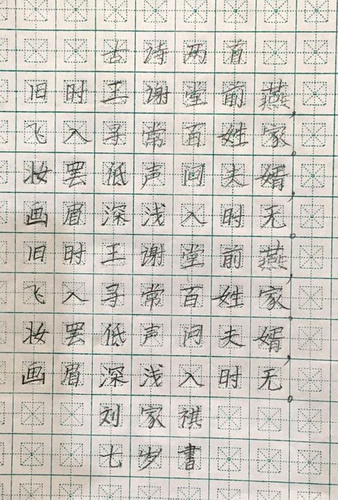 古诗两首
旧时王谢堂前燕,
飞入寻常百姓家。
妆罢低声问夫婿,
画眉深浅入时无。
旧时王谢堂前燕,
飞入寻常百姓家。
妆罢低声问夫婿,
画眉深浅入时无。
刘家祺
七岁书